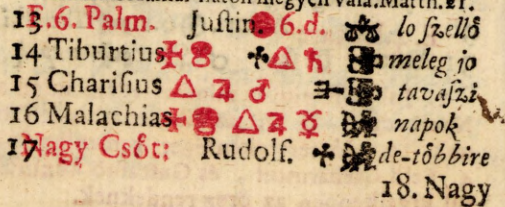 13 E.6. Palm. Justin. 6.d. lo ſzellő
14 Tiburtius ✠ △ ♄ meleg jo
15 Chariſius △ ♃ ♂ tavaſzi
16 Malachias ✠ △ ♃ ☿ napok
17 Nagy Csőt: Rudolf. ✠ de-többire
18. Nagy